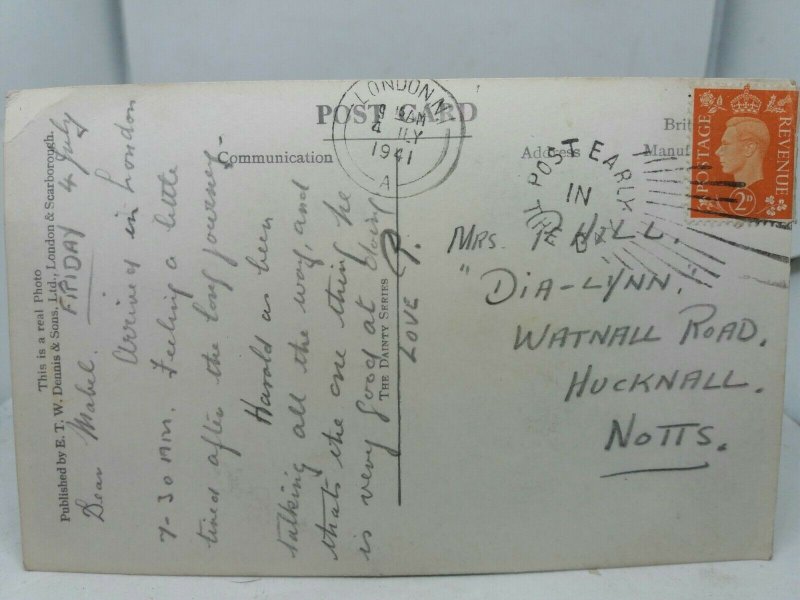 This is a real Photo
Published by E. T. W. Dennis & Sons, Ltd., London & Scarborough.
POST CARD
Communication
Address
Brit
Manuf
THE DAINTY SERIES
LONDON
4 JLY
1941
A
POST EARLY
IN
POSTAGE
REVENUE
2D
FRIDAY 4 July
Dear Mabel.
Arrived in London
7-30 AM. Feeling a little
tired after the long journey-
Harold as been
talking all the way, and
thats the one thing he
is very good at doing
LOVE
MRS. HILL.
"DIA-LYNN."
WATNALL ROAD.
HUCKNALL.
NOTTS.